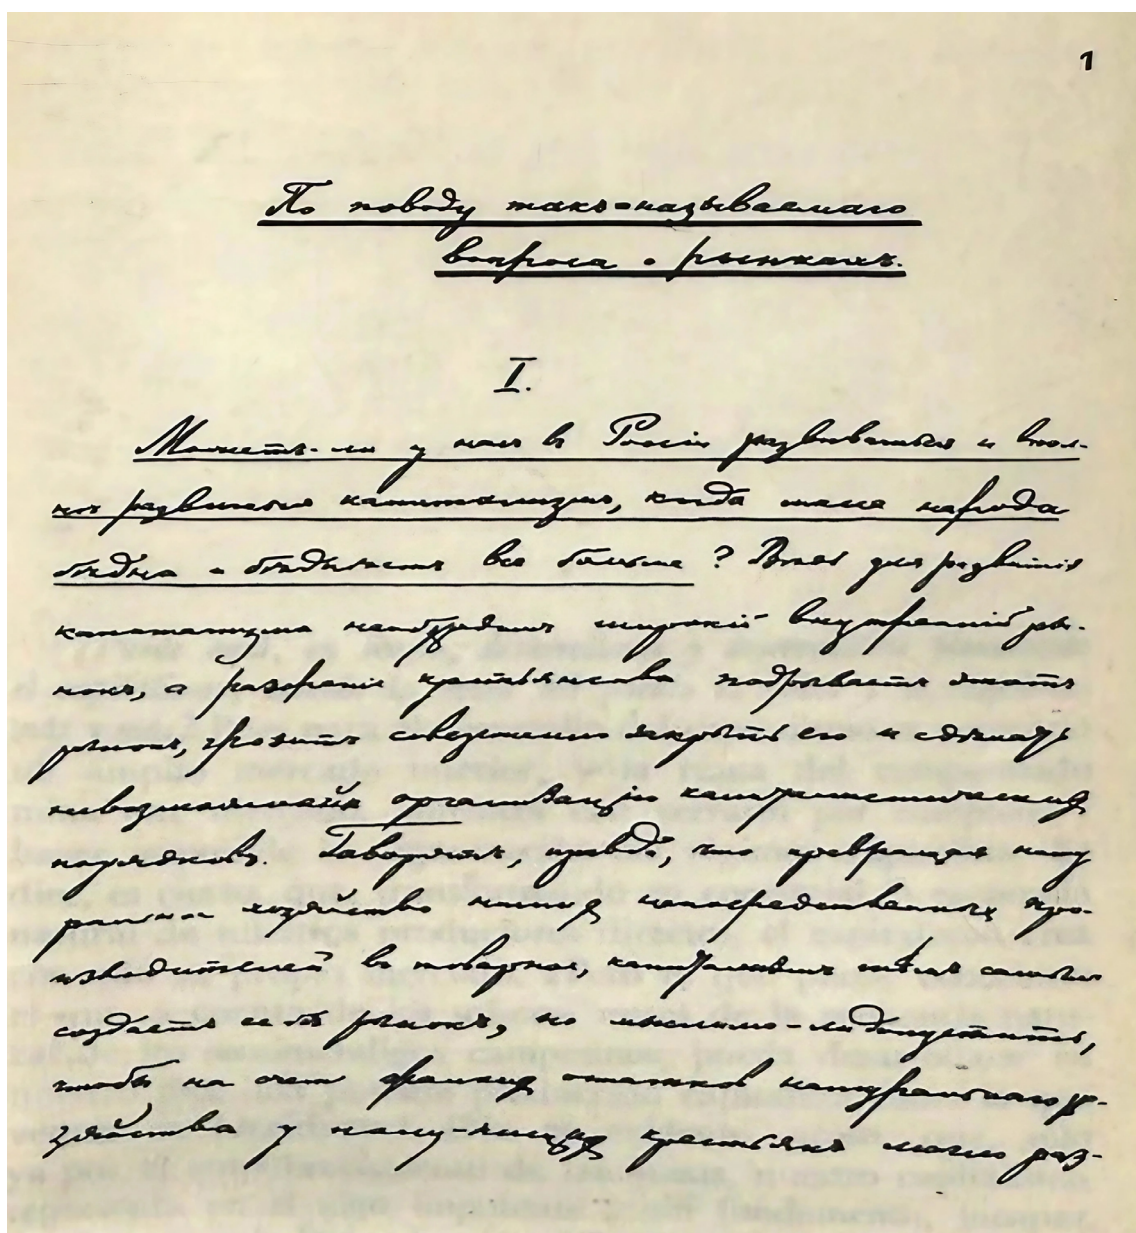 1
По поводу такъ-называемаго
вопроса о рынкахъ.
I.
Можетъ-ли у насъ въ Россіи развиваться и впол-
нѣ развиться капитализмъ, когда масса народа
бѣдна и бѣднѣетъ все больше? Вѣдь для развитія
капитализма необходимъ широкій внутренній ры-
нокъ, а разореніе крестьянства подрываетъ этотъ
рынокъ, грозитъ совершенно закрыть его и сдѣлать
невозможной организацію капиталистическихъ
порядковъ. Говорятъ, правда, что превращая нату
ральное хозяйство нашихъ непосредственныхъ про-
изводителей въ товарное, капитализмъ тѣмъ самымъ
создаетъ себѣ рынокъ, но мыслимо-ли допустить,
чтобы на счет жалкихъ остатковъ натуральнаго хо-
зяйства у полу-нищихъ крестьянъ могло раз-